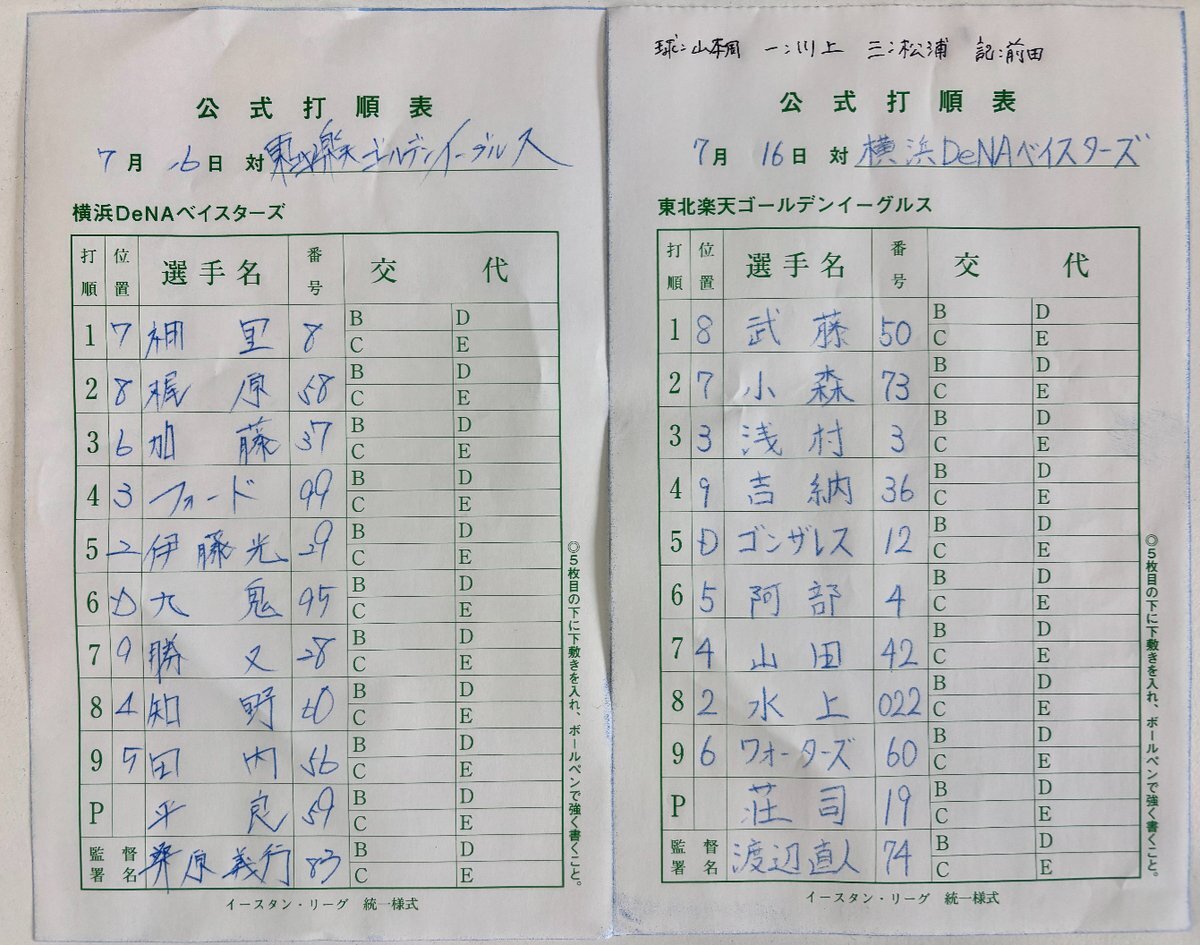 公式打順表
7月16日 対 東北楽天ゴールデンイーグルス
横浜DeNAベイスターズ
打順 位置 選手名 番号 交代
1 7 神里 8 B D
C E
2 8 梶原 58 B D
C E
3 6 加藤 37 B D
C E
4 3 フォード 99 B D
C E
5 2 伊藤光 29 B D
C E
6 D 九鬼 95 B D
C E
7 9 勝又 28 B D
C E
8 4 知野 60 B D
C E
9 5 田内 56 B D
C E
P 平良 59 B D
C E
監督署名 桑原義行 83 B D
C E
◎5枚目の下に下敷きを入れ、ボールペンで強く書くこと。
イースタン・リーグ 統一様式
球: 一:川上 三:松浦 記:前田
公式打順表
7月16日 対 横浜DeNAベイスターズ
東北楽天ゴールデンイーグルス
打順 位置 選手名 番号 交代
1 8 武藤 50 B D
C E
2 7 小森 73 B D
C E
3 3 浅村 3 B D
C E
4 9 吉納 36 B D
C E
5 D ゴンザレス 12 B D
C E
6 5 阿部 4 B D
C E
7 4 山田 42 B D
C E
8 2 水上 022 B D
C E
9 6 ウォーターズ 60 B D
C E
P 荘司 19 B D
C E
監督署名 渡辺直人 74 B D
C E
◎5枚目の下に下敷きを入れ、ボールペンで強く書くこと。
イースタン・リーグ 統一様式